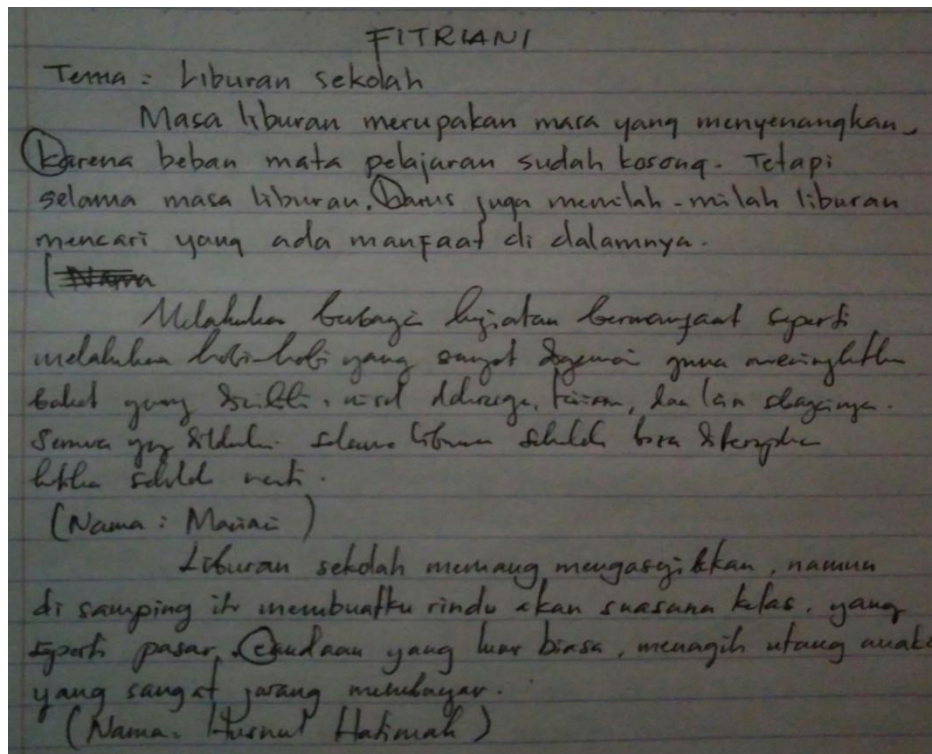 FITRIANI
Tema : Liburan sekolah
Masa liburan merupakan masa yang menyenangkan,
Karena beban mata pelajaran sudah kosong. Tetapi
selama masa liburan. harus juga memilah-milah liburan
mencari yang ada manfaat di dalamnya.
Nama
Melakukan berbagai kegiatan bermanfaat seperti
melakukan hobi-hobi yang sangat digemari guna meningkatkan
bakat yang dimiliki, olahraga, dan lain sebagainya.
Semua yg dilakukan selama liburan sekolah bisa diterapkan
ketika sekolah nanti.
(Nama : Mariani)
Liburan sekolah memang mengasyikkan, namun
di samping itu membuatku rindu akan suasana kelas, yang
seperti pasar, Candaan yang luar biasa, menagih utang anak2
yang sangat jarang membayar.
(Nama. Husnul Hatimah)